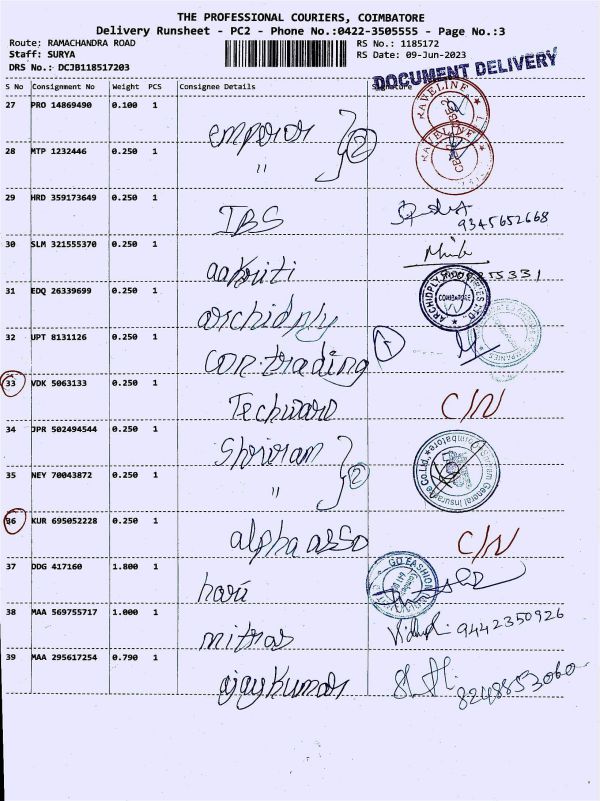 THE PROFESSIONAL COURIERS, COIMBATORE
Delivery Runsheet - PC2 - Phone No.:0422-3505555 - Page No.:3
Route: RAMACHANDRA ROAD
RS No.: 1185172
Staff: SURYA
RS Date: 09-Jun-2023
DRS No.: DCJB118517203
DOCUMENT DELIVERY
S No Consignment No Weight PCS Consignee Details Signature
27 PRO 14869490 0.100 1
emperor
28 MTP 1232446 0.250 1
" 2
29 HRD 359173649 0.250 1
IBS
9345652668
30 SLM 321555370 0.250 1
aakriti
31 EDQ 26339699 0.250 1
archidply
COIMBATORE
32 UPT 8131126 0.250 1
con.trading
33 VDK 5063133 0.250 1
Techward C/N
34 JPR 502494544 0.250 1
Shriram
35 NEY 70043872 0.250 1
" 2
36 KUR 695052228 0.250 1
alpha asso C/N
37 DDG 417160 1.800 1
hari
GO FASHION
38 MAA 569755717 1.000 1
mitras
9442350926
39 MAA 295617254 0.790 1
ajaykumar
8248853060